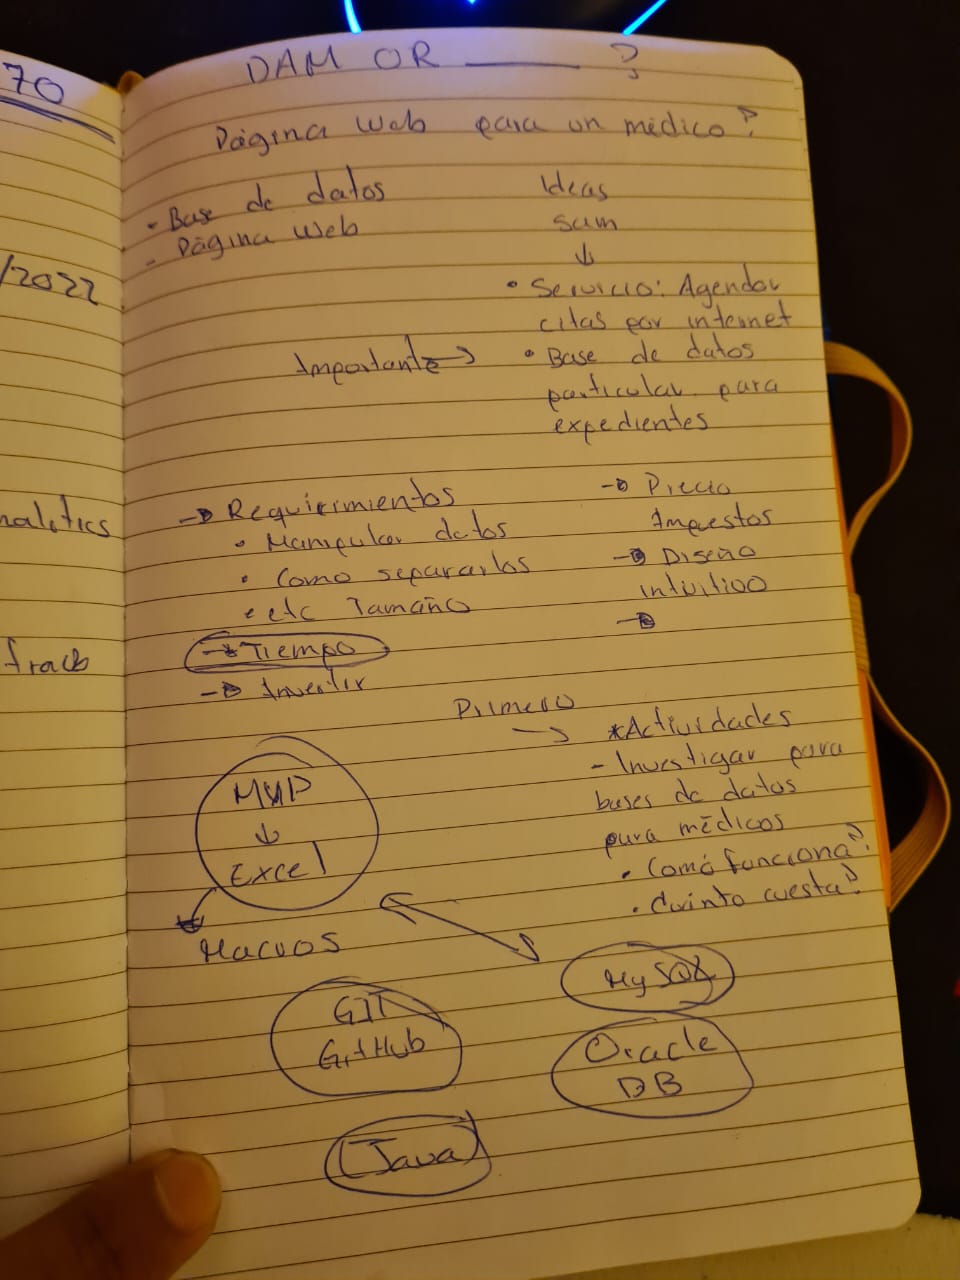 70
/2022
nalitics
frach
DAM OR ______ ?
Página web para un médico?
- Base de datos
- Página web
Ideas
sam
↓
• Servicio: Agendar
citas por internet
Importante →
• Base de datos
particular para
expedientes
→ Requirimientos
• Manipular datos
• Como separarlos
• etc Tamaño
→ Tiempo
→ Invertir
→ Precio
Impuestos
→ Diseño
intuitivo
→
Primero
→ *Actividades
- Investigar para
bases de datos
para médicos
• Comó funciona?
• Cuánto cuesta?
MVP
↓
Excel
Macros
GIT
GitHub
MySQL
Oracle
DB
(Java)